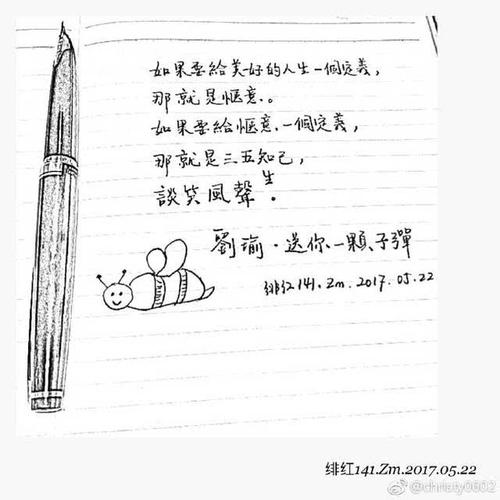 如果要給美好的人生一個定義，
那就是愜意。
如果要給愜意一個定義，
那就是三五知己，
談笑風聲生。
劉瑜·送你一顆子彈
緋红141.Zm.2017.05.22
绯红141.Zm.2017.05.22
@christy0602